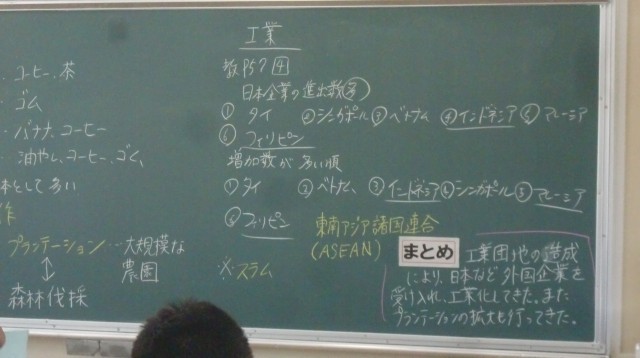 ・コーヒー、茶
・ゴム
・バナナ、コーヒー
・油やし、コーヒー、ゴム、
として多い
作
プランテーション…大規模な
農園
↕
森林伐採
工業
教P57 ④
日本企業の進出数多
① タイ ②シンガポール ③ベトナム ④インドネシア ⑤マレーシア
⑥フィリピン
増加数が多い順
①タイ ②ベトナム ③インドネシア ④シンガポール ⑤マレーシア
⑥フィリピン
東南アジア諸国連合
(ASEAN)
※スラム
まとめ 工業団地の造成
により、日本など外国企業を
受け入れ、工業化してきた。また
プランテーションの拡大も行ってきた。